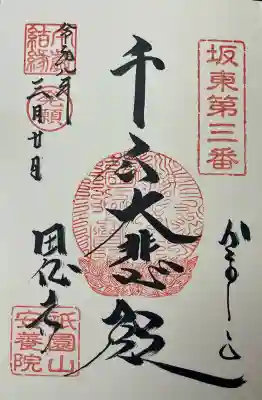 坂東第三番
かまくら
千手大悲殿
田代寺
令和
三月廿日
結縁
祇園山
安養院